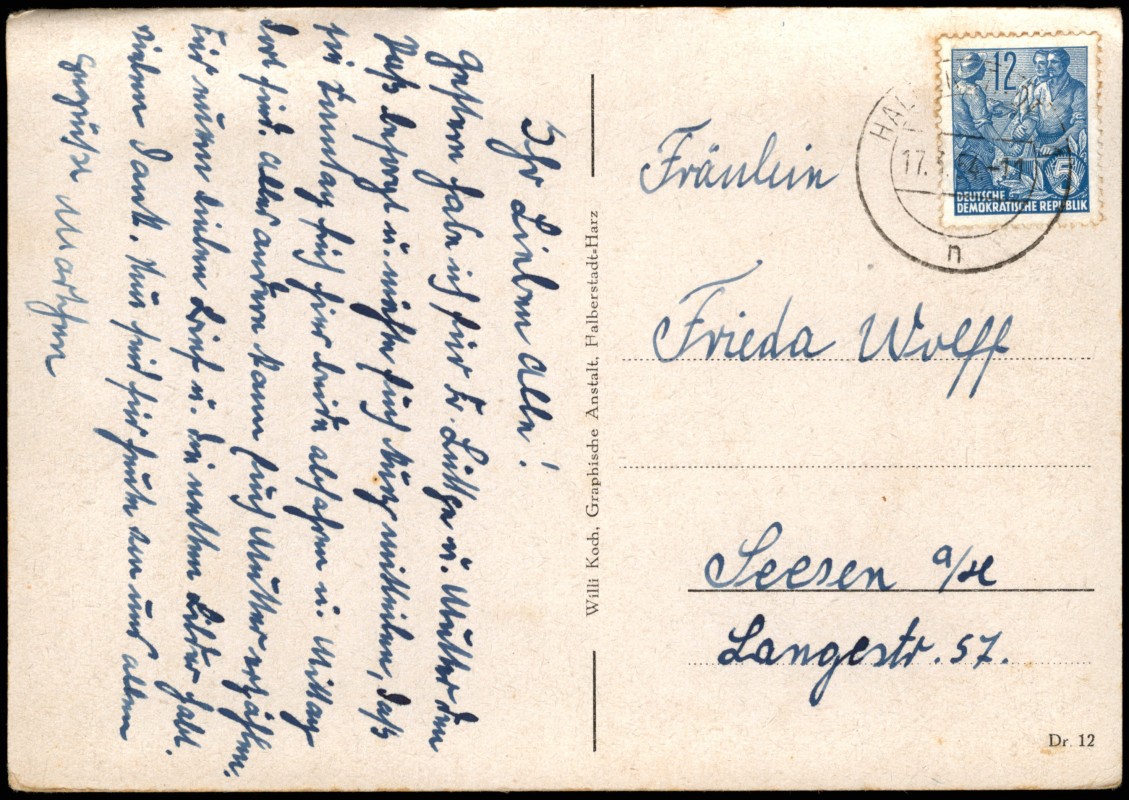 Ihr Lieben alle!
Gestern habe ich für Fr. Lüttge u. Mutter den
Paß besorgt u. möchte Euch kurz mitteilen, daß
sie Sonntag früh hier beide abfahren u. Mittag
dort sind. Alles andere kann Euch Mutter erzählen.
Für euren lieben Brief u. die netten Bilder habt
vielen Dank. Nun seid für heute von uns allen
gegrüßt
Willi Koch, Graphische Anstalt, Halberstadt-Harz
12
DEUTSCHE
DEMOKRATISCHE REPUBLIK
n
Fräulein
Frieda Wolff
Seesen a/H
Langestr. 57.
Dr. 12